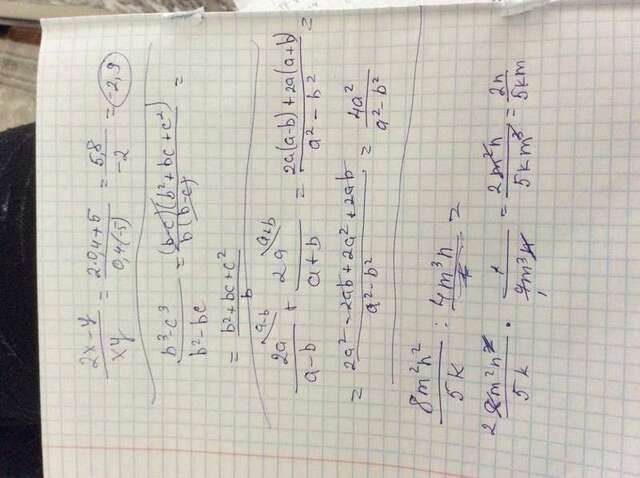 (2x-y)/(xy) = (2·0,4+5)/(0,4(-5)) = 5,8/-2 = -2,9
(b³-c³)/(b²-bc) = ((b-c)(b²+bc+c²))/(b(b-c)) =
= (b²+bc+c²)/b
a-b a+b
2a/(a-b) + 2a/(a+b) = (2a(a-b)+2a(a+b))/(a²-b²) =
= (2a²-2ab+2a²+2ab)/(a²-b²) = 4a²/(a²-b²)
8m²n²/5k : 4m³n/1 =
2 8m²n²/5k · 1/4m³n = 2m²n/5km³ = 2n/5km
1